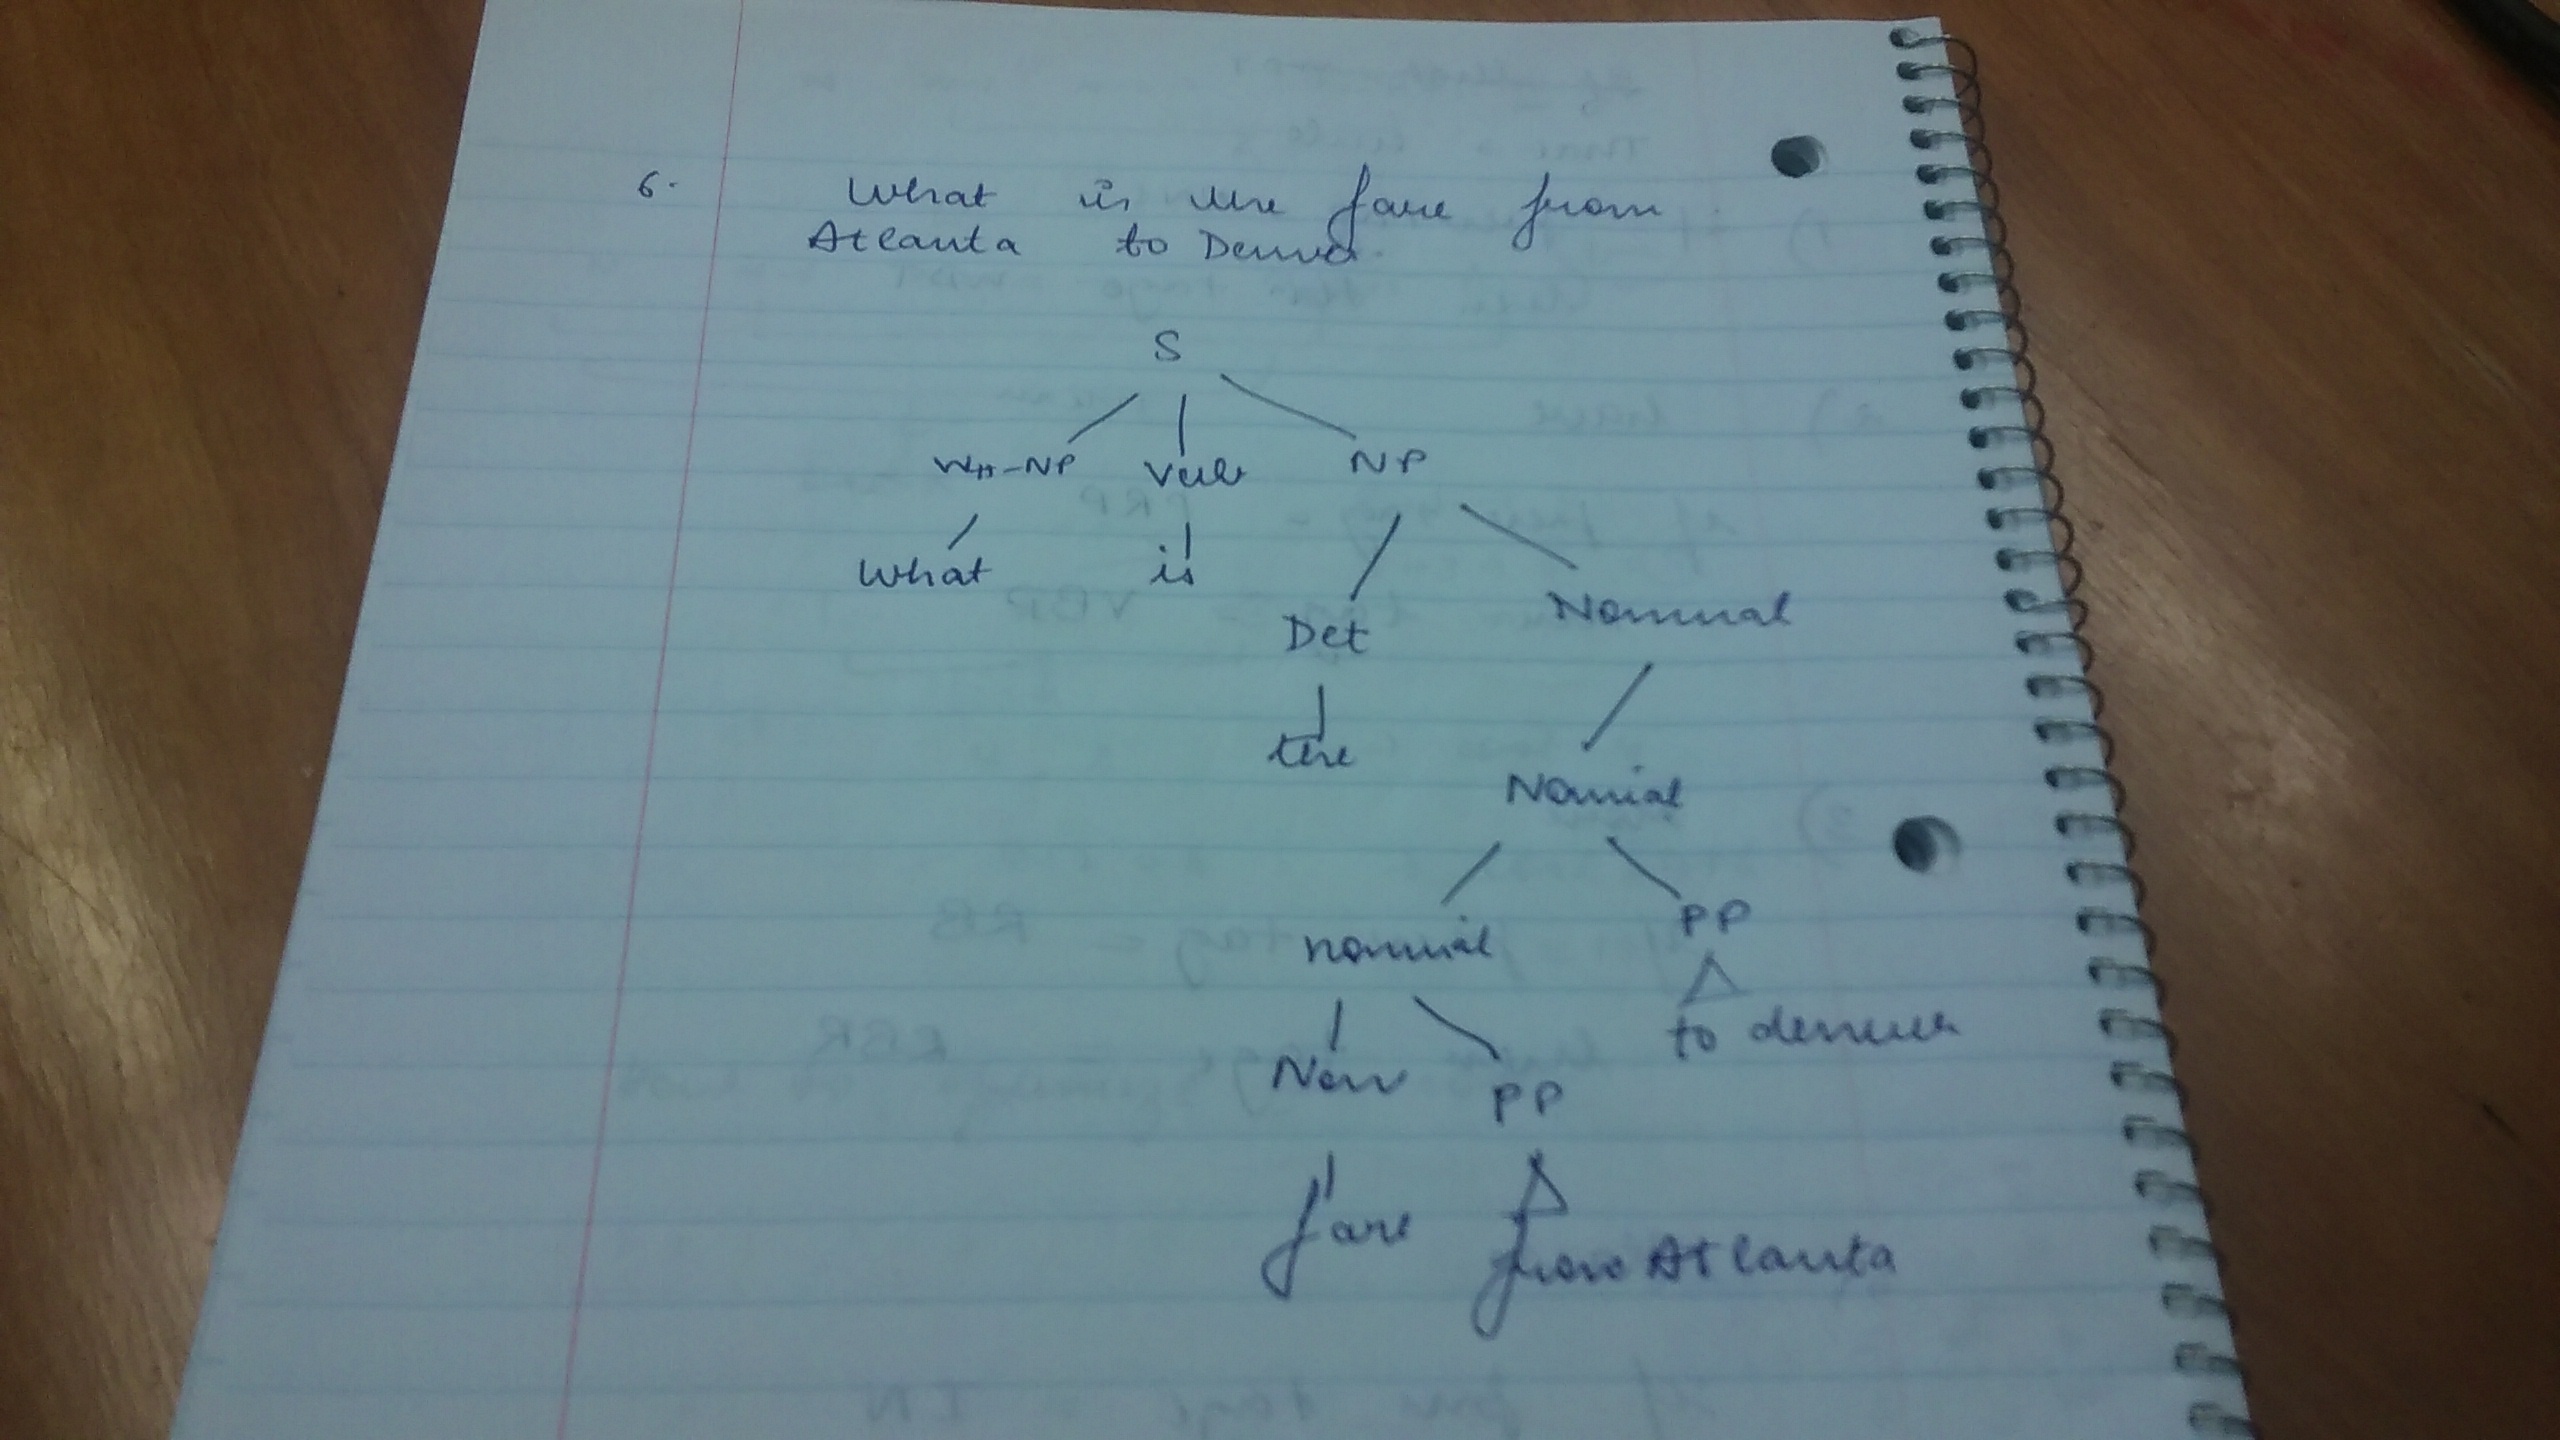 6. What is the fare from
Atlanta to Denver.
S
WH-NP Verb NP
What is
Det Nominal
the
Nomial
nomial PP
to denver
Noun PP
fare from Atlanta